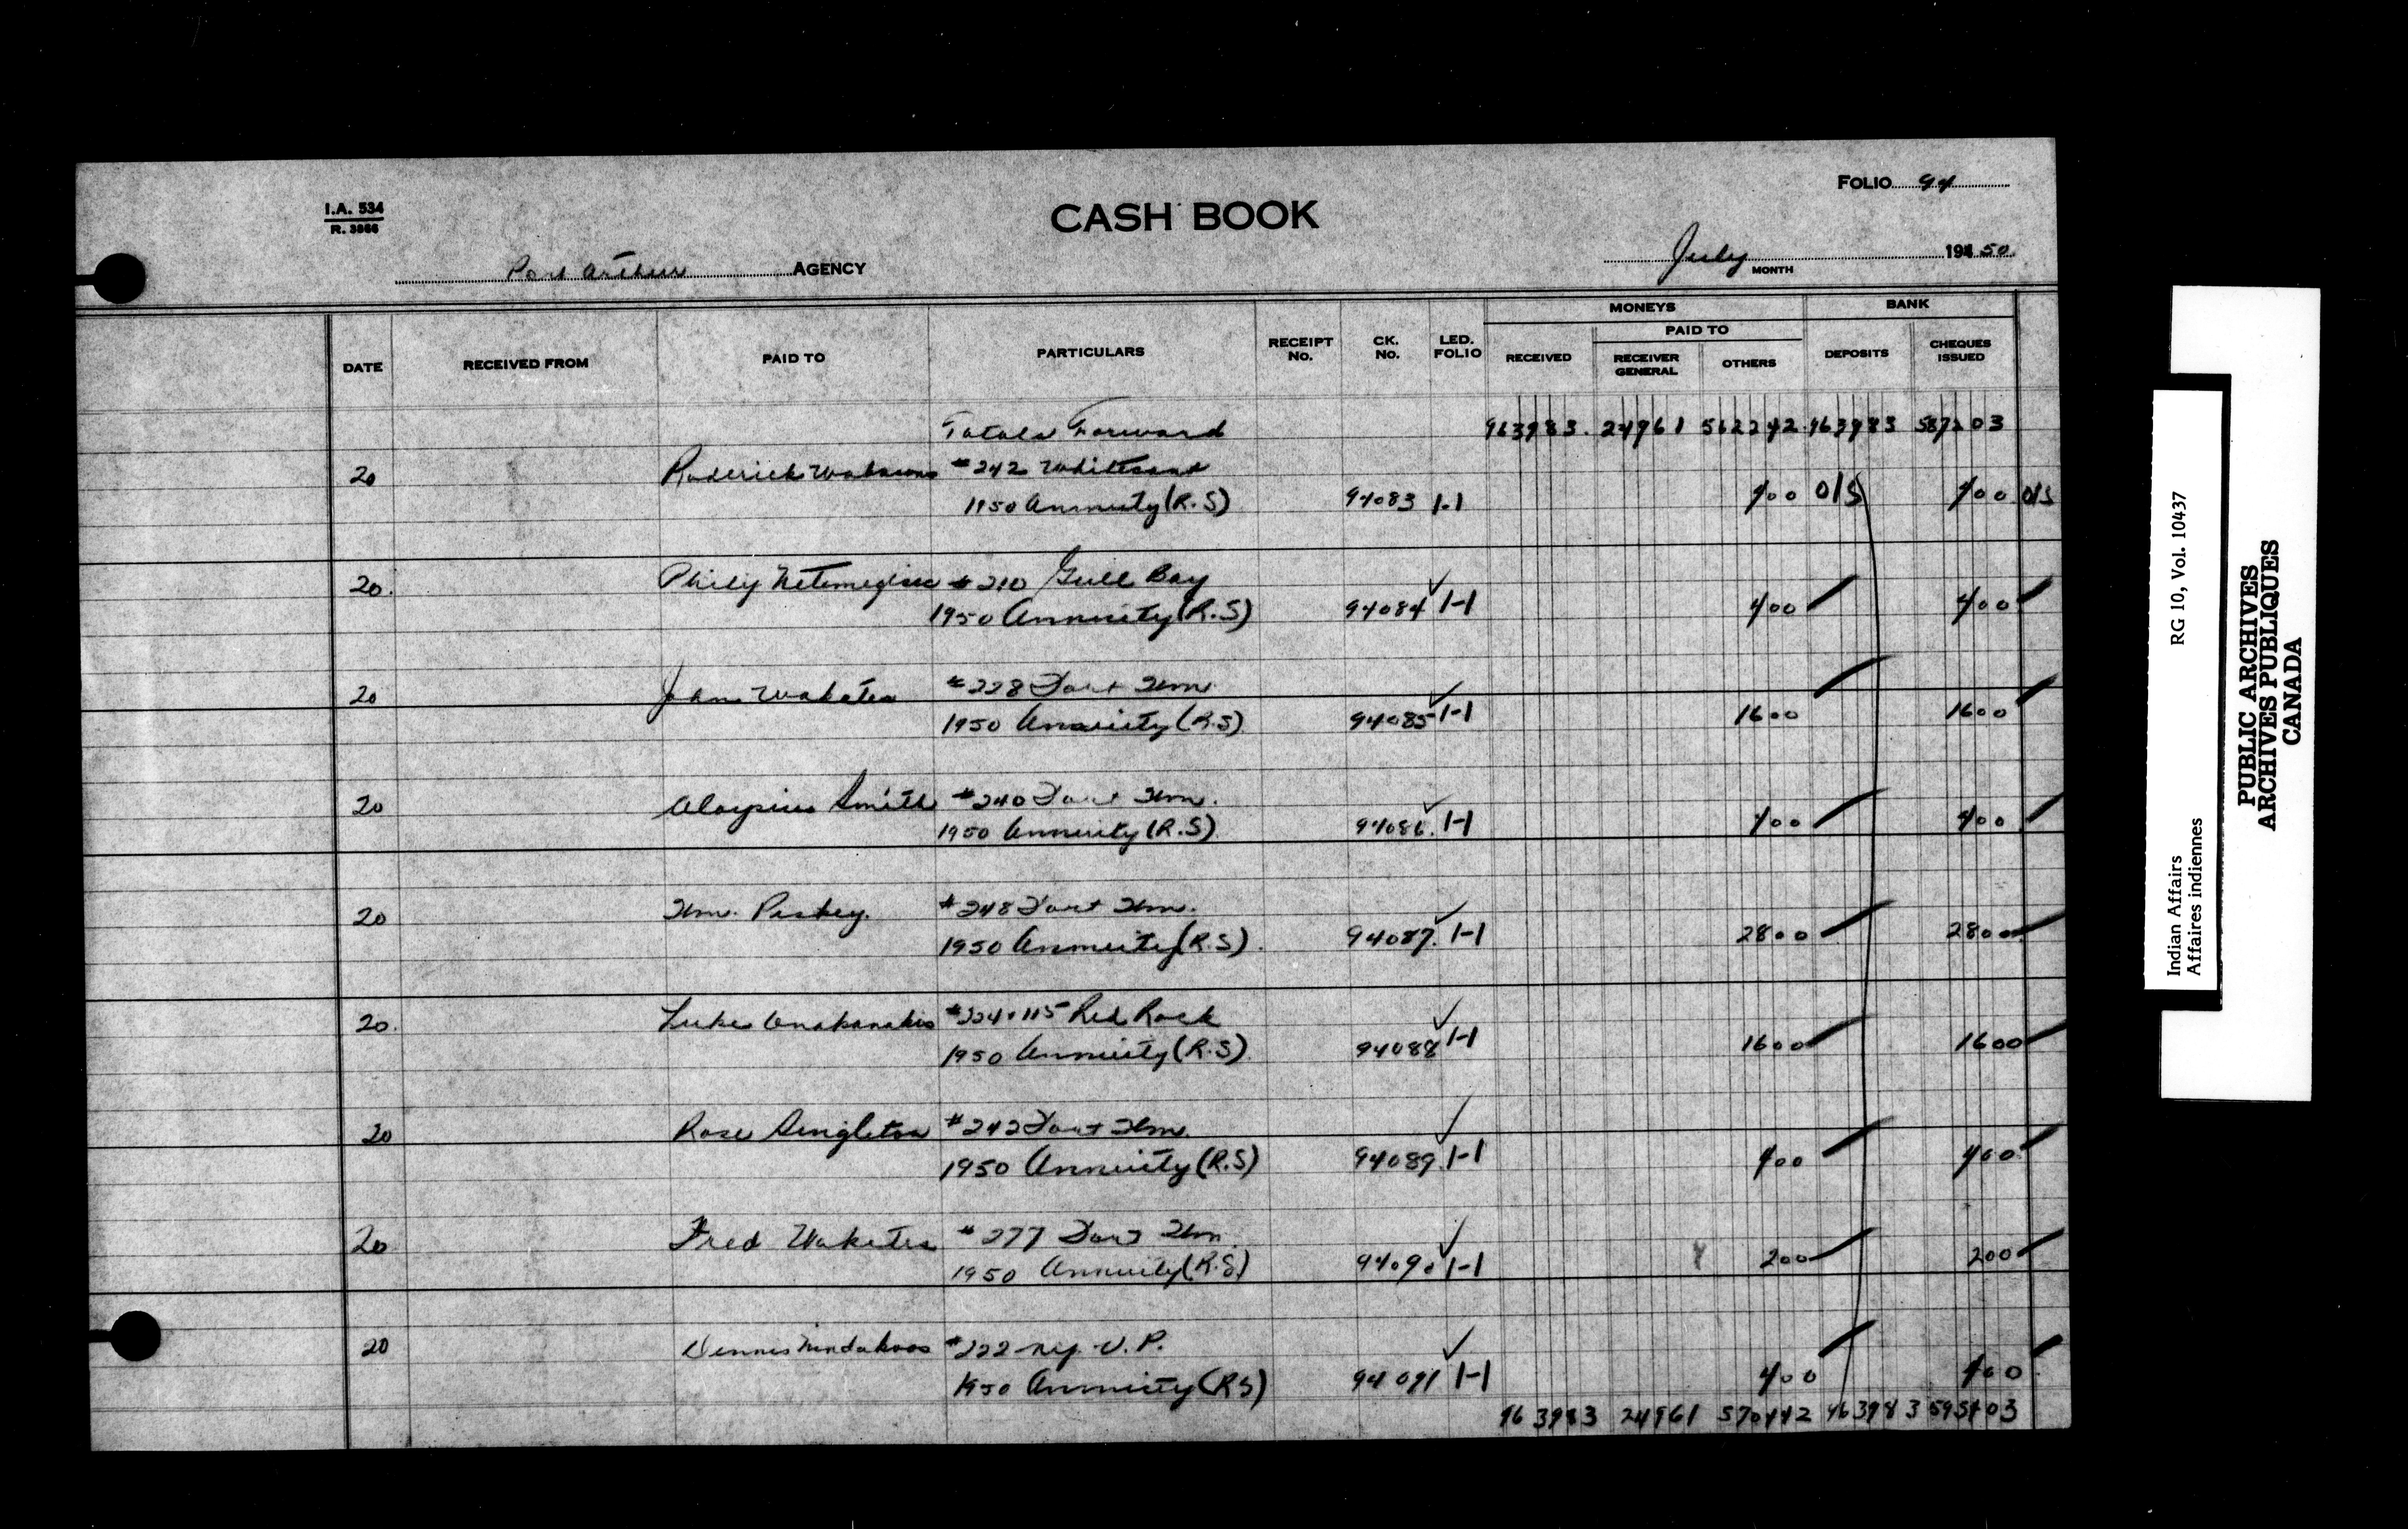 FOLIO 94
I.A. 534
R. 3866
CASH BOOK
Port Arthur AGENCY
July MONTH 194 50
MONEYS BANK
PAID TO
DATE RECEIVED FROM PAID TO PARTICULARS RECEIPT No. CK. No. LED. FOLIO RECEIVED RECEIVER GENERAL OTHERS DEPOSITS CHEQUES ISSUED
Totals Forward 963983 24961 562242 963983 587203
20 Roderick #242 Whitesand
1950 Annuity (R.S) 94083 1-1 400 O/S 400 O/S
20. Philip #210 Gull Bay
1950 Annuity (R.S) 94084 1-1 400 400
20 John #228 Fort Wm
1950 Annuity (R.S) 94085 1-1 1600 1600
20 Aloysius Smith #240 Fort Wm.
1950 Annuity (R.S) 94086 1-1 400 400
20 Wm. #248 Fort Wm.
1950 Annuity (R.S) 94087 1-1 2800 2800
20. Luke #224 + 115 Red Rock
1950 Annuity (R.S) 94088 1-1 1600 1600
20 Rose Singleton #242 Fort Wm.
1950 Annuity (R.S) 94089 1-1 400 400
20 Fred #277 Fort Wm.
1950 Annuity (R.S) 94090 1-1 200 200
20 Dennis #222 Nip. V.P.
1950 Annuity (RS) 94091 1-1 400 400
963983 24961 570442 963983 595403
Indian Affairs RG 10, Vol. 10437
Affaires indiennes
PUBLIC ARCHIVES
ARCHIVES PUBLIQUES
CANADA